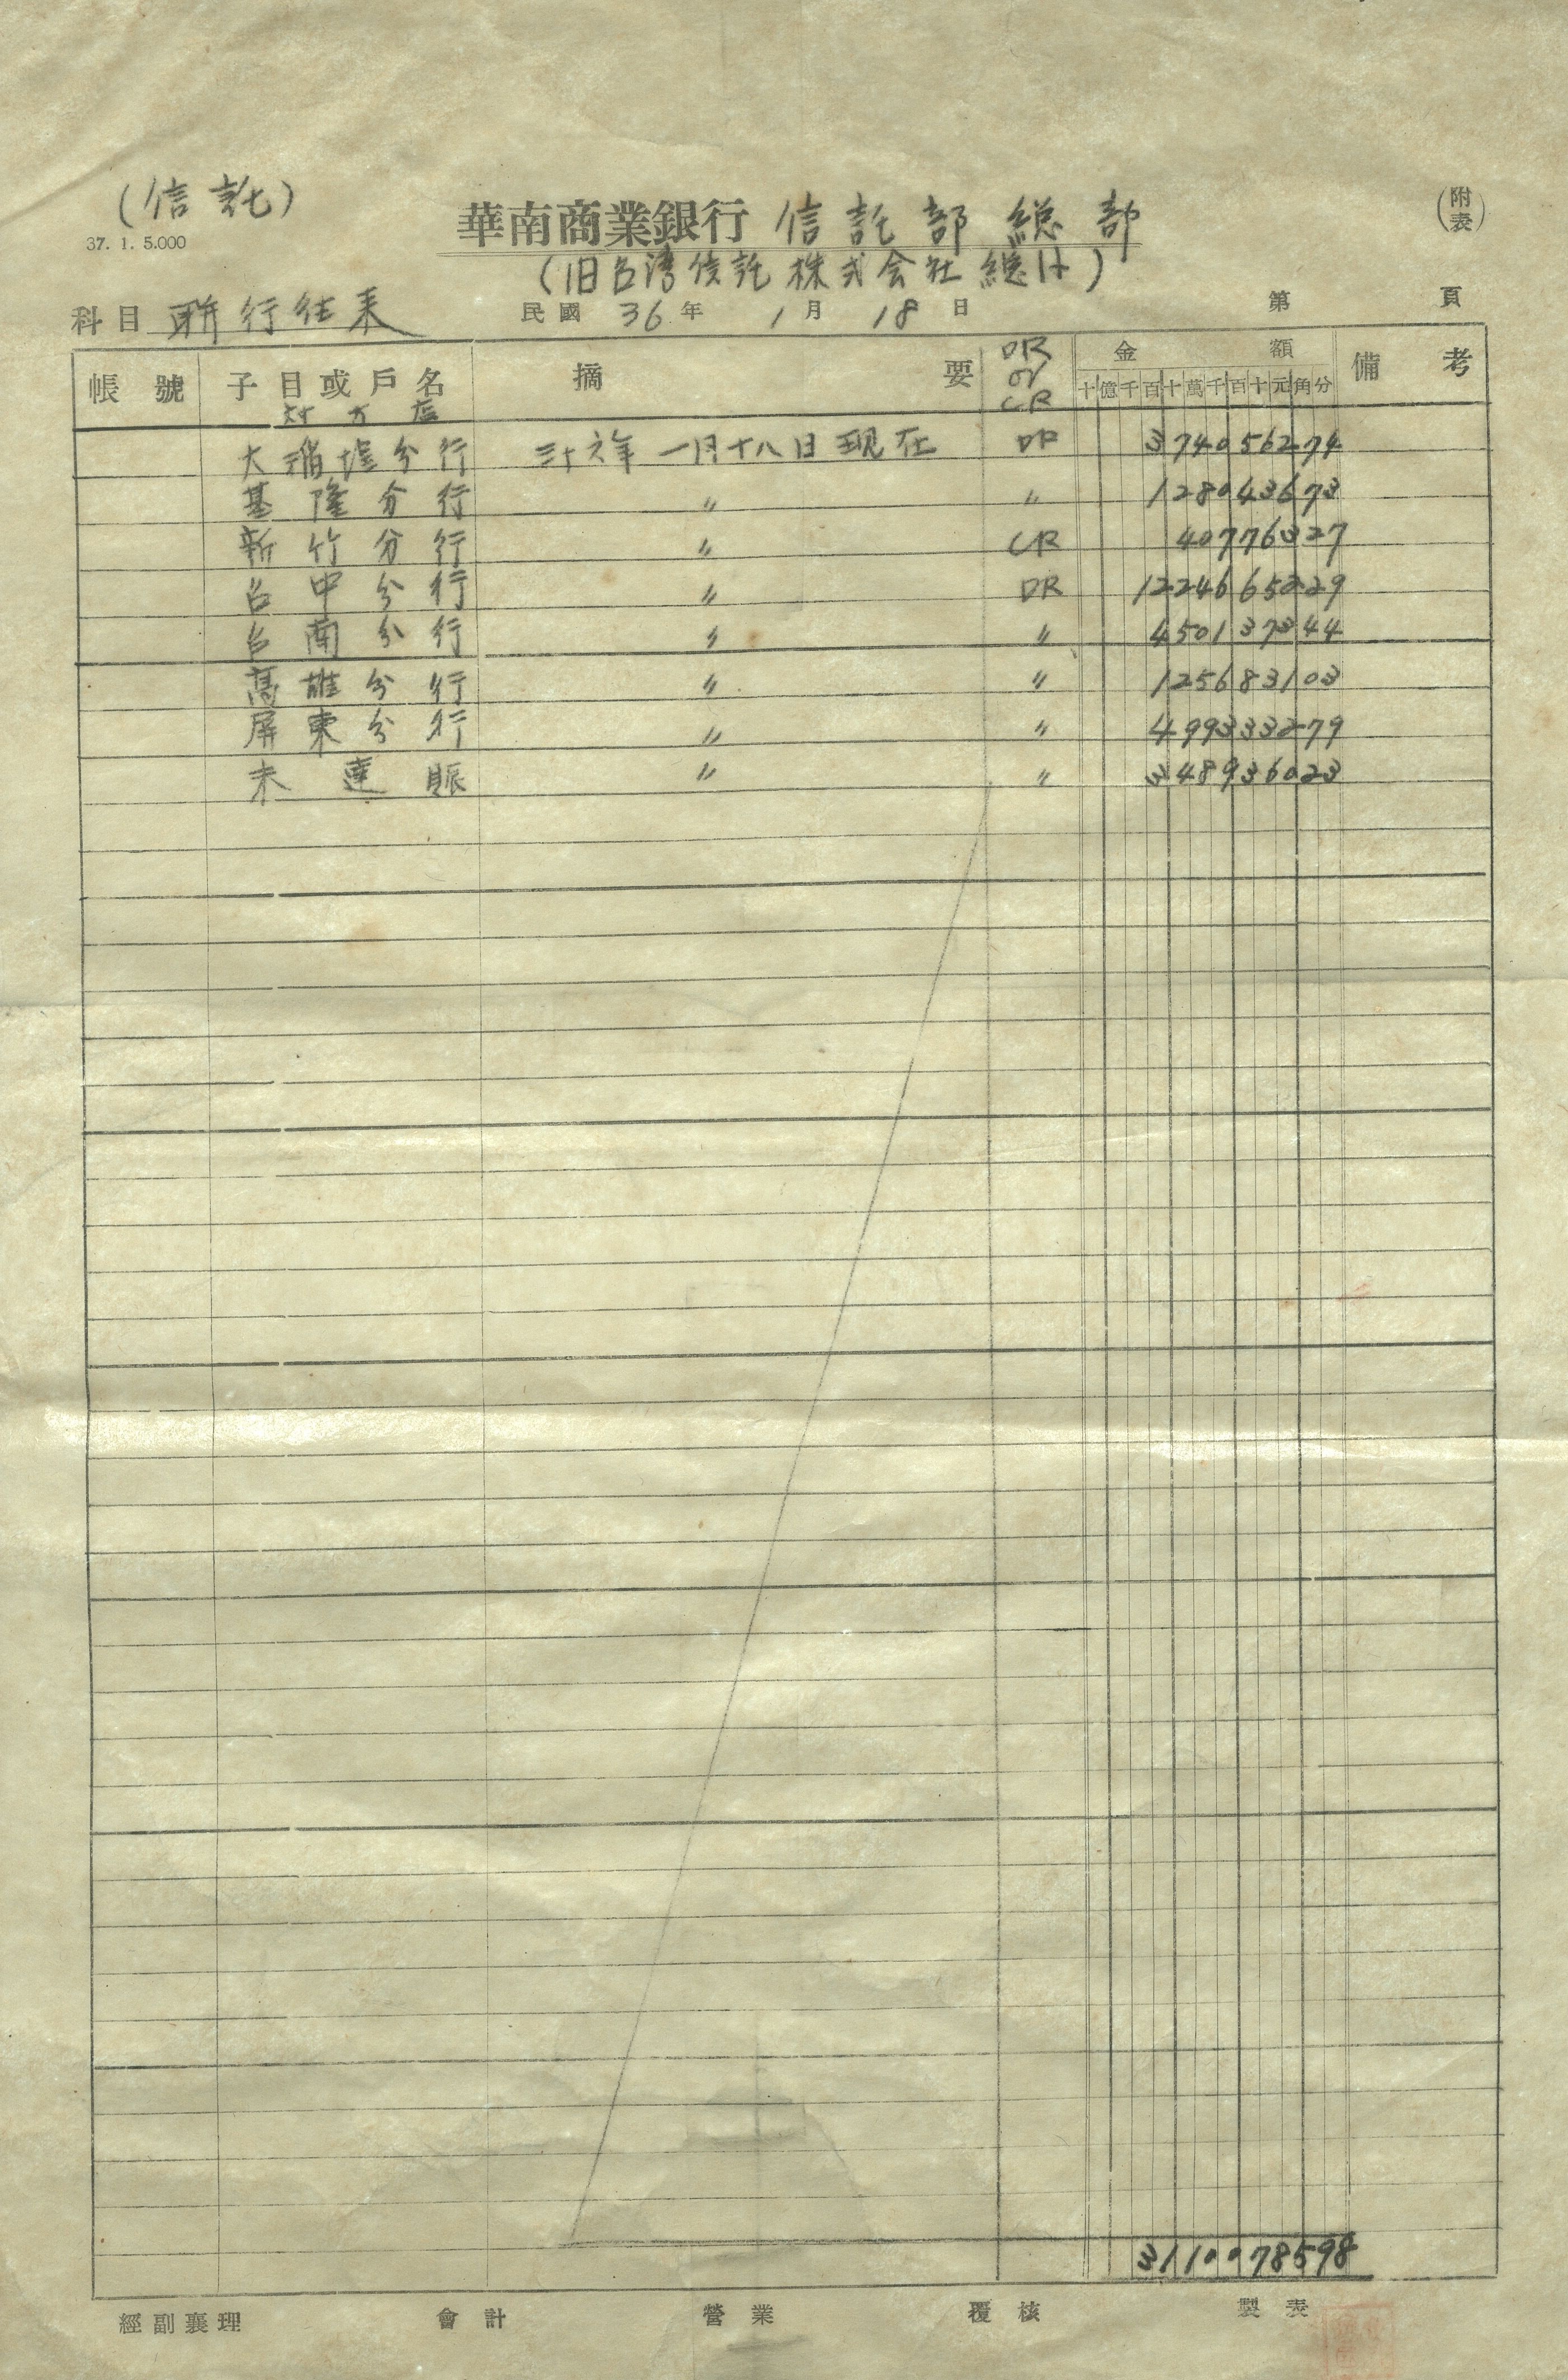 (信託)
37. 1. 5.000
華南商業銀行 信託部総部
(附表)
(旧台湾信託株式会社総计)
科目 聯行往来
民國 36 年 1 月 18 日
第 頁
帳號 子目或戶名 摘要 DR or CR 金額 備考
十億千百十萬千百十元角分
对方店
大稲埕分行 三十六年一月十八日現在 DR 374056274
基隆分行 〃 〃 128043673
新竹分行 〃 CR 40776327
台中分行 〃 DR 1224665229
台南分行 〃 〃 450137344
高雄分行 〃 〃 125683103
屏東分行 〃 〃 499333279
未達賬 〃 〃 348936023
3110078598
經副襄理 會計 營業 覆核 製表